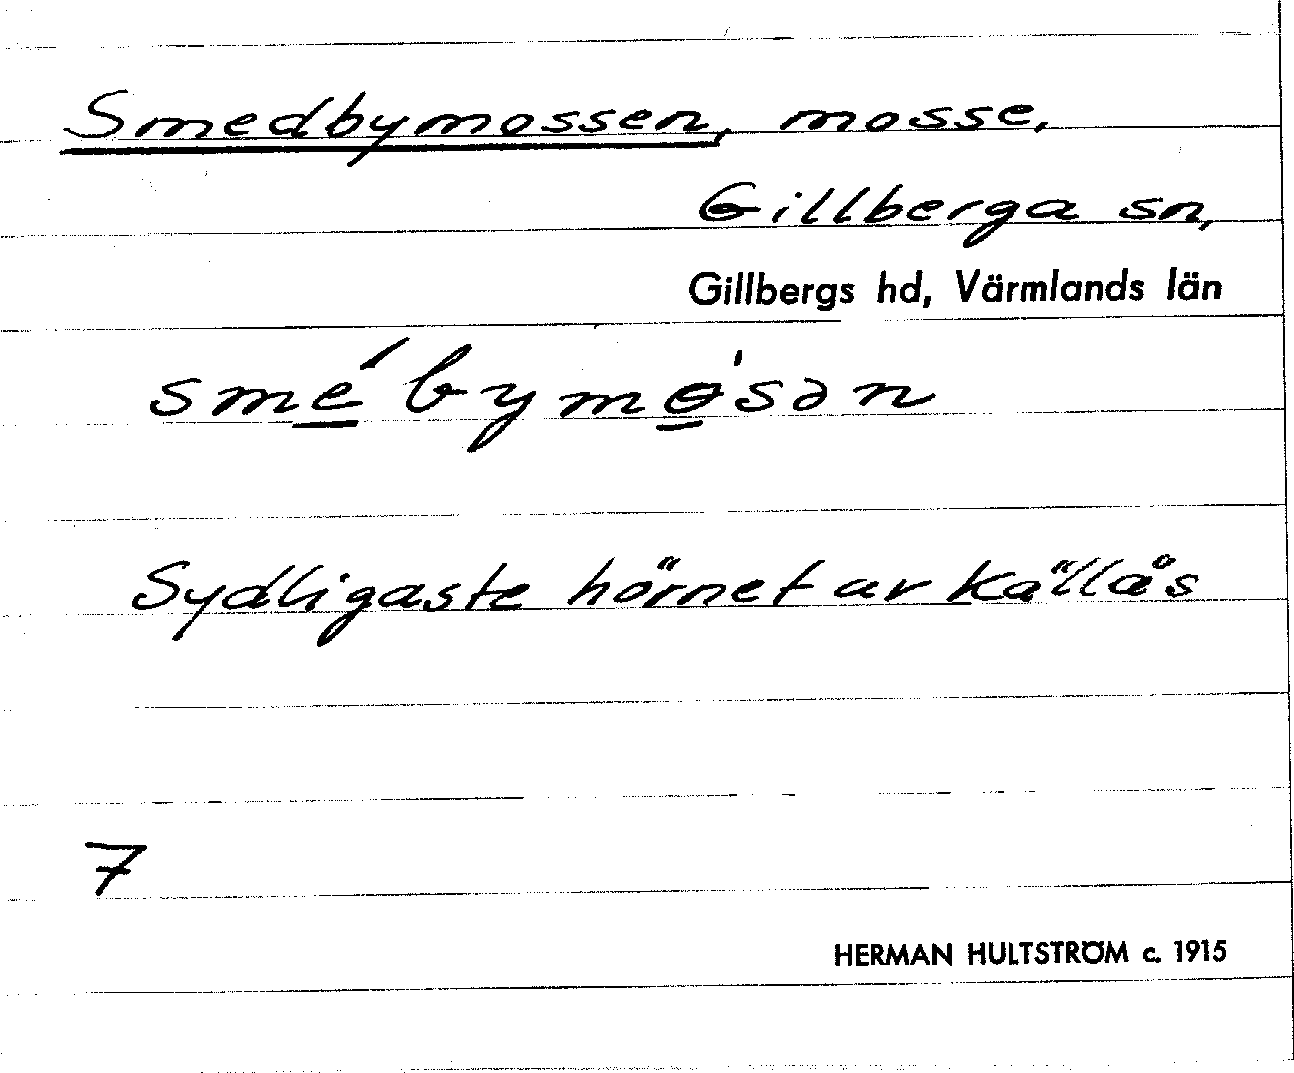 Smedbymossen, mosse,
Gillberga sn,
Gillbergs hd, Värmlands län
smé bymɵ'sən
Sydligaste hörnet av Källås
7
HERMAN HULTSTRÖM c. 1915